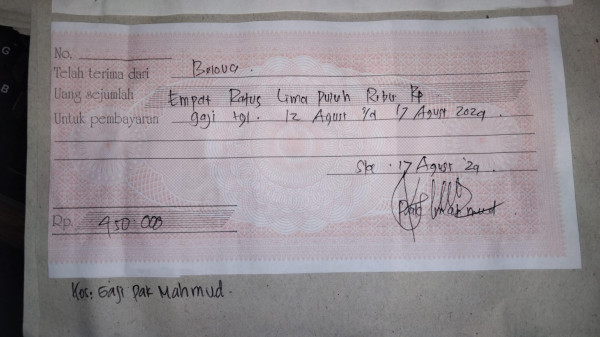 No.
Telah terima dari Belova.
Uang sejumlah Empat Ratus Lima Puluh Ribu Rp
Untuk pembayaran gaji tgl. 12 Agust s/d 17 Agust 2024.
17 Agust '24.
Pak Mahmud
Rp. 450.000
Kos: Gaji Pak Mahmud.